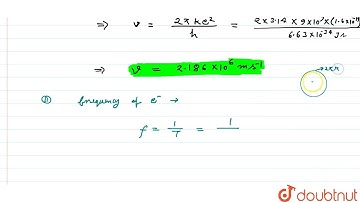 ⇒ v = 2πke²/h = 2×3.14×9×10⁹×(1.6×10⁻¹⁹)/6.63×10⁻³⁴ Js
⇒ v = 2.186×10⁶ ms⁻¹
frequency of e⁻ →
f = 1/T = 1/
doubtnut